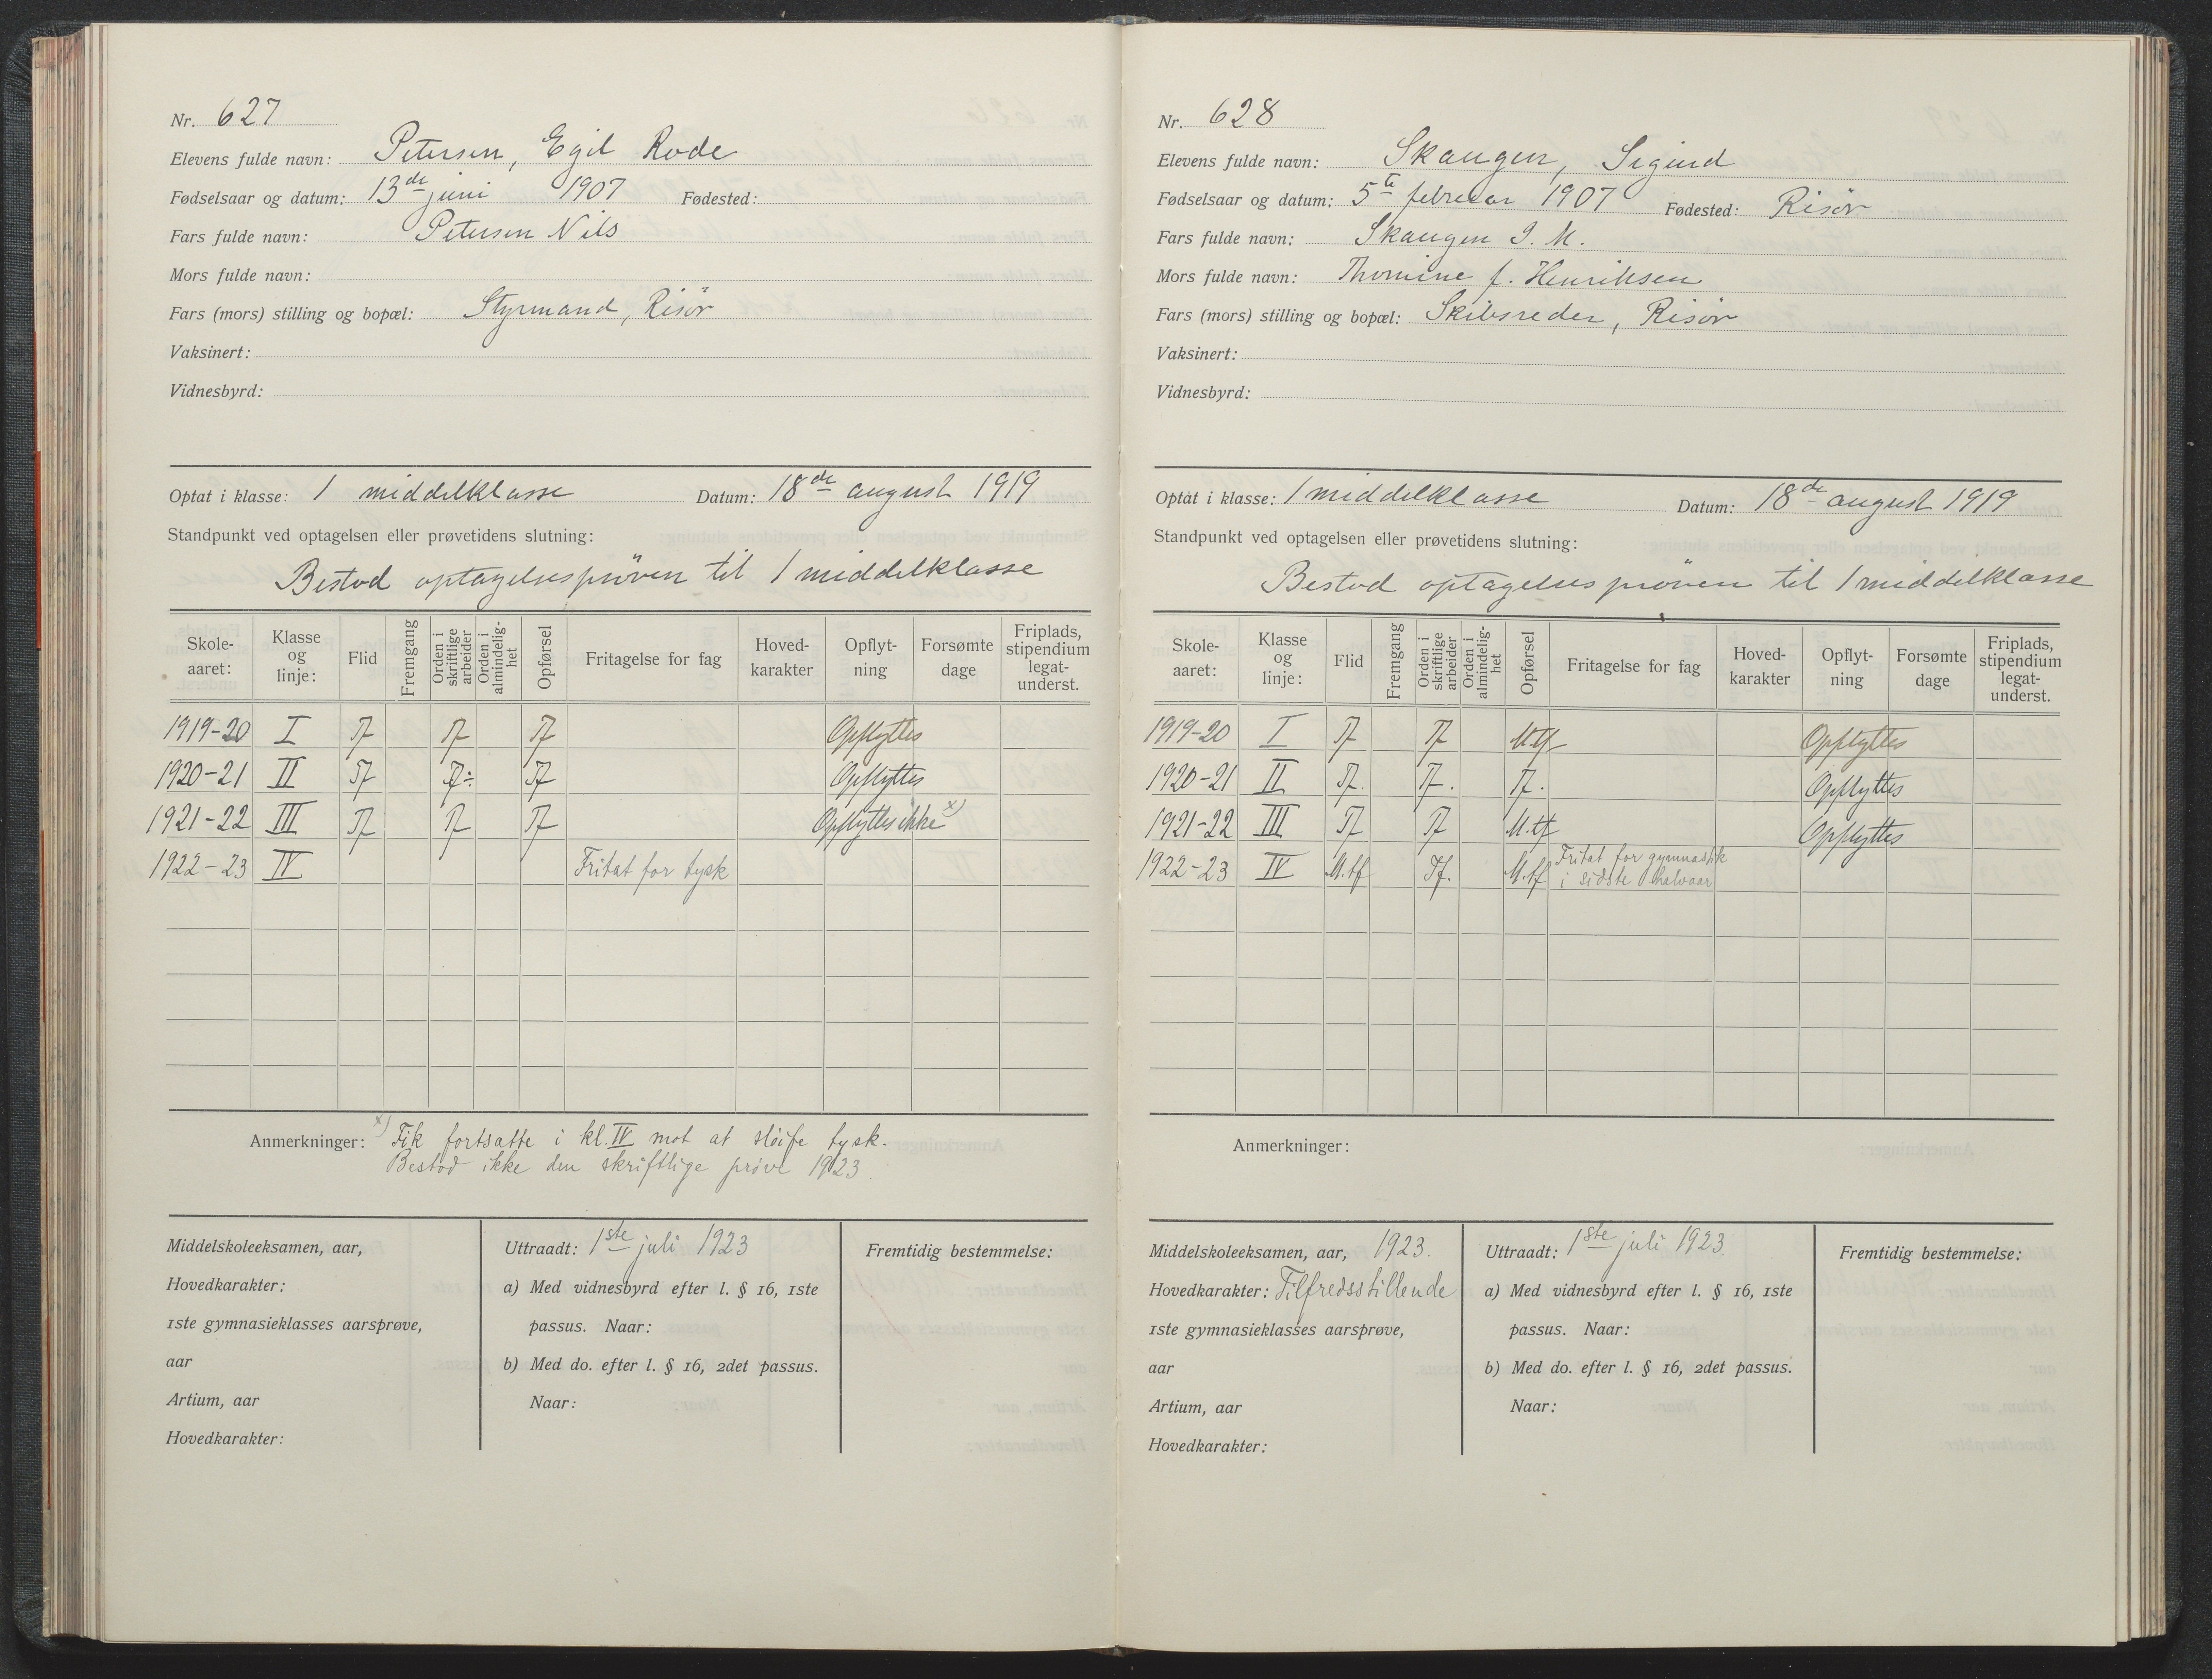 Nr. 627
Elevens fulde navn: Petersen, Egil Rode
Fødselsaar og datum: 13de juni 1907 Fødested:
Fars fulde navn: Petersen Nils
Mors fulde navn:
Fars (mors) stilling og bopæl: Styrmand, Risör
Vaksinert:
Vidnesbyrd:
Optat i klasse: 1 middelklasse Datum: 18de august 1919
Standpunkt ved optagelsen eller prøvetidens slutning:
Bestod optagelsespröven til 1 middelklasse
Skole-aaret: Klasse og linje: Flid Fremgang Orden i skriftlige arbeider Orden i almindelig-het Opførsel Fritagelse for fag Hoved-karakter Opflyt-ning Forsømte dage Friplads, stipendium legat-underst.
1919-20 I Tf Tf Tf Opflyttes
1920-21 II Tf Tf÷ Tf Opflyttes
1921-22 III Tf Tf Tf Opflyttes ikke x)
1922-23 IV Fritat for tysk
Anmerkninger: x) Fik fortsatte i kl. IV mot at sløife tysk.
Bestod ikke den skriftlige prøve 1923.
Middelskoleeksamen, aar,
Hovedkarakter:
1ste gymnasieklasses aarsprøve,
aar
Artium, aar
Hovedkarakter:
Uttraadt: 1ste juli 1923
a) Med vidnesbyrd efter l. § 16, 1ste
passus. Naar:
b) Med do. efter l. § 16, 2det passus.
Naar:
Fremtidig bestemmelse:
Nr. 628
Elevens fulde navn: Skaugen, Sigurd
Fødselsaar og datum: 5te februar 1907 Fødested: Risör
Fars fulde navn: Skaugen I. M.
Mors fulde navn: Thomine f. Henriksen
Fars (mors) stilling og bopæl: Skibsreder, Risör
Vaksinert:
Vidnesbyrd:
Optat i klasse: 1 middelklasse Datum: 18de august 1919
Standpunkt ved optagelsen eller prøvetidens slutning:
Bestod optagelsespröven til 1 middelklasse
Skole-aaret: Klasse og linje: Flid Fremgang Orden i skriftlige arbeider Orden i almindelig-het Opførsel Fritagelse for fag Hoved-karakter Opflyt-ning Forsømte dage Friplads, stipendium legat-underst.
1919-20 I Tf Tf M.tf Opflyttes
1920-21 II Tf. Tf. Tf. Opflyttes
1921-22 III Tf Tf M.tf Opflyttes
1922-23 IV M.tf Tf. M.tf Fritat for gymnastik
i sidste halvaar
Anmerkninger:
Middelskoleeksamen, aar, 1923.
Hovedkarakter: Tilfredsstillende
1ste gymnasieklasses aarsprøve,
aar
Artium, aar
Hovedkarakter:
Uttraadt: 1ste juli 1923.
a) Med vidnesbyrd efter l. § 16, 1ste
passus. Naar:
b) Med do. efter l. § 16, 2det passus.
Naar:
Fremtidig bestemmelse: